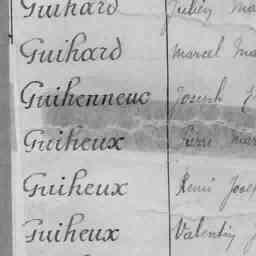 Guihard Julien Ma
Guihard Marcel Ma
Guihenneuc Joseph
Guiheux Pierre Mar
Guiheux Remi Josep
Guiheux Valentin J